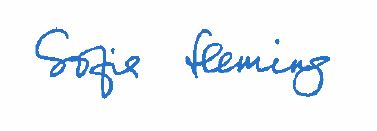 Sofie Fleming